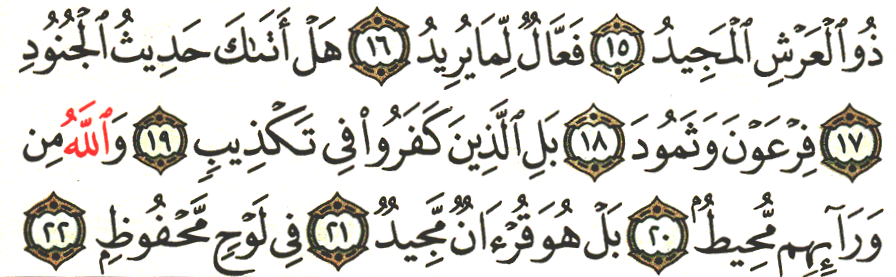 ذُو ٱلْعَرْشِ ٱلْمَجِيدُ ١٥ فَعَّالٌ لِّمَا يُرِيدُ ١٦ هَلْ أَتَىٰكَ حَدِيثُ ٱلْجُنُودِ
١٧ فِرْعَوْنَ وَثَمُودَ ١٨ بَلِ ٱلَّذِينَ كَفَرُوا۟ فِى تَكْذِيبٍ ١٩ وَٱللَّهُ مِن
وَرَآئِهِم مُّحِيطٌۢ ٢٠ بَلْ هُوَ قُرْءَانٌ مَّجِيدٌ ٢١ فِى لَوْحٍ مَّحْفُوظٍۭ ٢٢